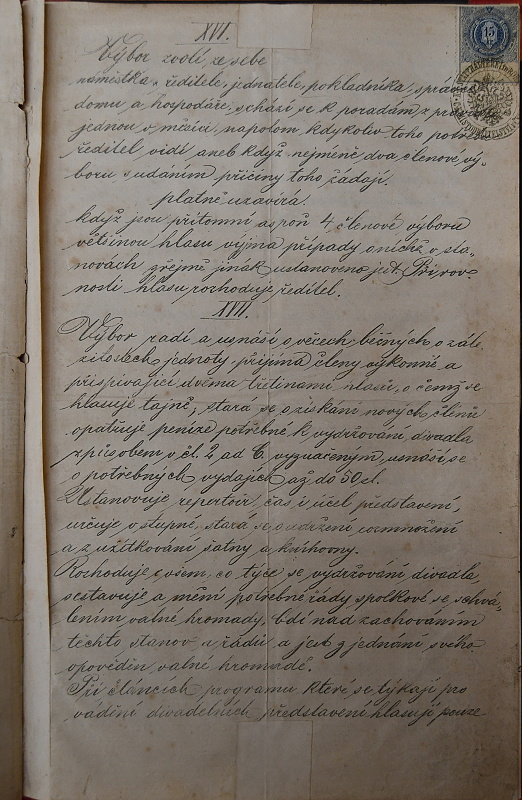 XVI.
15
Výbor zvolí ze sebe
náměstka, ředitele, jednatele, pokladníka, správce
domu a hospodáře, schází se k poradám z pravidla
jednou v měsíci, napotom kdykoliv toho potřeba
ředitel vidí aneb když nejméně dva členové vý-
boru s udáním příčiny toho žádají.
platně uzavírá.
když jsou přítomni aspoň 4 členové výboru
většinou hlasů vyjma případy o nichž v sta-
novách zřejmě jinák ustanoveno jest. Při rov-
nosti hlasů rozhoduje ředitel.
XVII.
Výbor radí a usnáší o věcech běžných o zále-
žitostech jednoty, přijímá členy výkonné a
přispívající dvěma třetinami hlasů, o čemž se
hlasuje tajně, stará se o získání nových členů
opatřuje peníze potřebné k vydržování divadla
způsobem v čl. 2 ad 6 vyznačeným, usnáší se
o potřebných vydajích až do 50 zl.
Ustanovuje repertoir, čas i účel představení,
určuje vstupné, stará se o udržení rozmnožení
a zužitkování šatny a knihovny.
Rozhoduje o všem, co týče se vydržování divadla,
sestavuje a mění potřebné řády spolkové se schvá-
lením valné hromady, bdí nad zachováním
těchto stanov a řádů a jest z jednání svého
opověděn valné hromadě.
Při článcích programu, které se týkají pro
vádění divadelních představení hlasují pouze